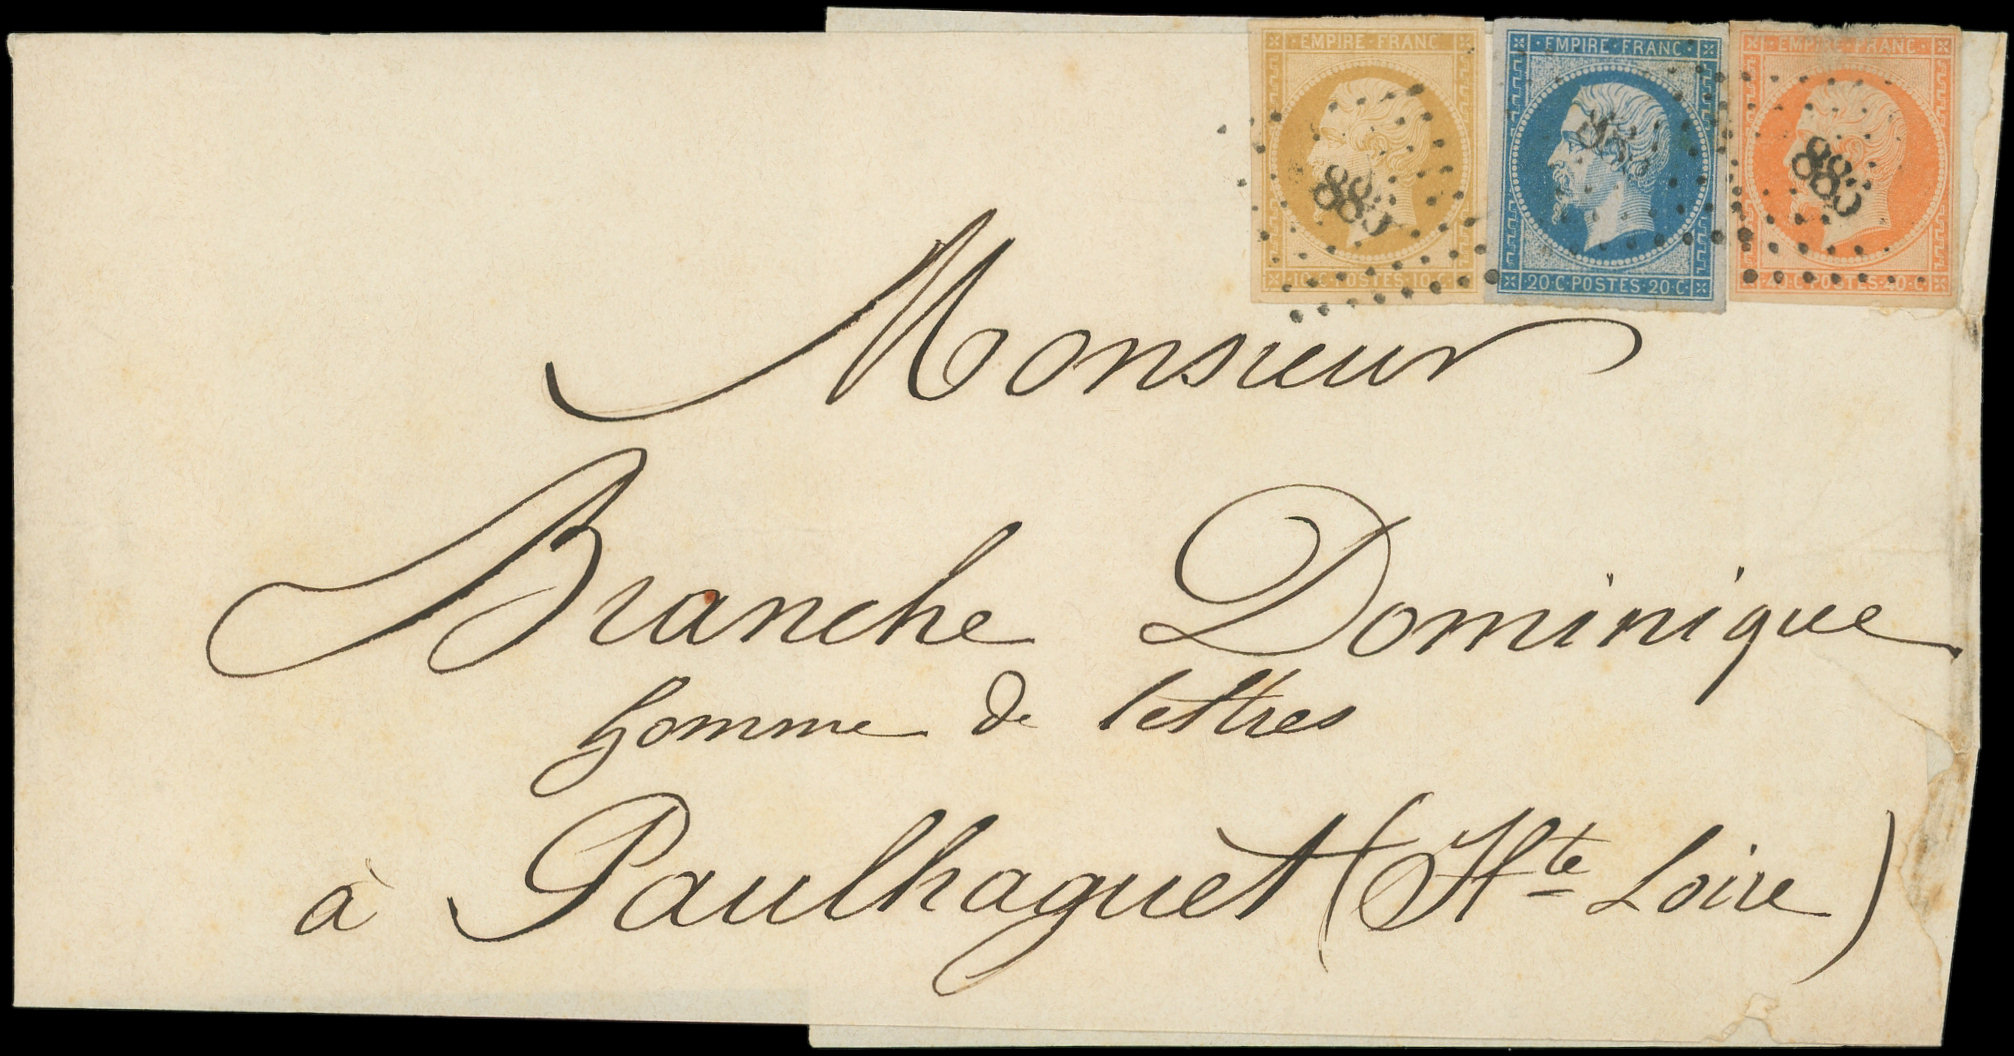 EMPIRE FRANC
EMPIRE·FRANC
EMPIRE FRANC
885
885
885
10·C·POSTES·10·C
20·C·POSTES·20·C
40·C·POSTES·40·C
Monsieur
Branche Dominique
homme de lettres
à Paulhaguèt (Hte Loire)